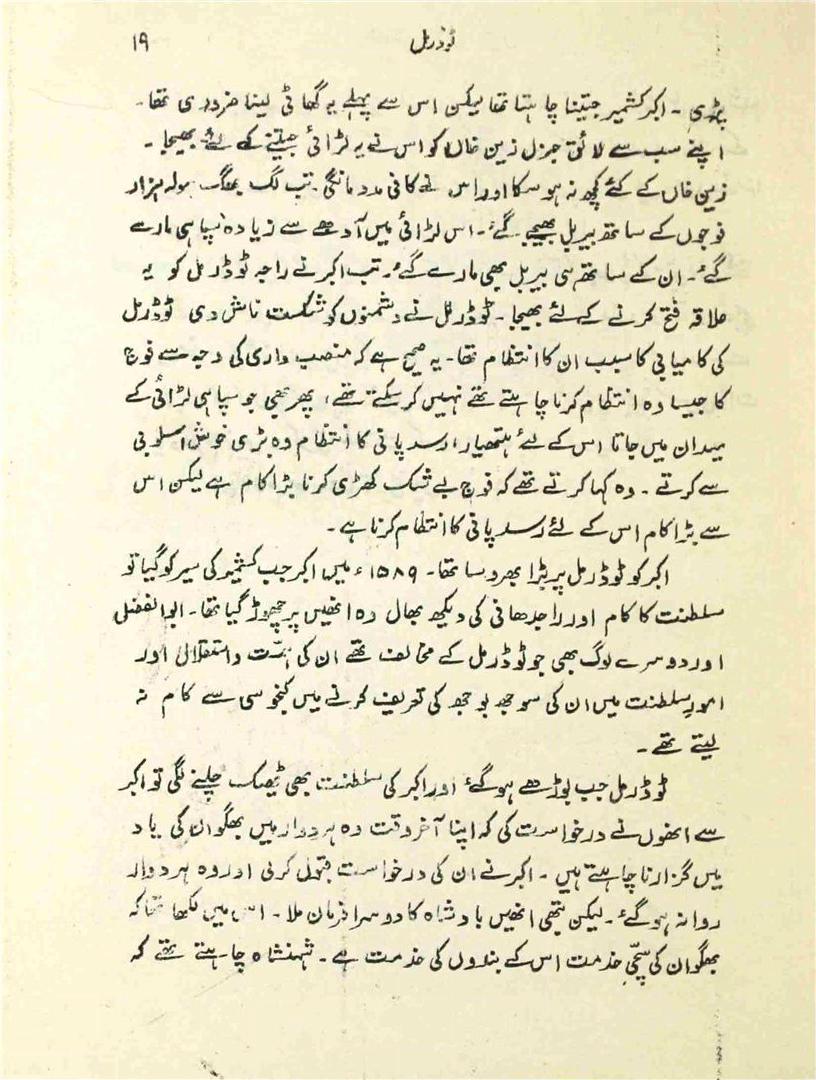 ٹوڈرمل ۱۹
پڑی ۔ اکبر کشمیر جیتنا چاہتا تھا لیکن اس سے پہلے یہ گھاٹی لینا ضروری تھا ۔
اپنے سب سے لائق جنرل زین خاں کو اس نے یہ لڑائی جیتنے کے لئے بھیجا ۔
زین خاں کے کئے کچھ نہ ہو سکا اور اس نے کافی مدد مانگی ۔ تب لگ بھگ سولہ ہزار
فوجوں کے ساتھ بیربل بھیجے گئے ۔ اس لڑائی میں آدھے سے زیادہ سپاہی مارے
گئے ۔ ان کے ساتھ ہی بیربل بھی مارے گئے ۔ تب اکبر نے راجہ ٹوڈرمل کو یہ
علاقہ فتح کرنے کے لئے بھیجا ۔ ٹوڈرمل نے دشمنوں کو شکست فاش دی ٹوڈرمل
کی کامیابی کا سبب ان کا انتظام تھا ۔ یہ صحیح ہے کہ منصب داری کی وجہ سے فوج
کا جیسا وہ انتظام کرنا چاہتے تھے نہیں کر سکتے تھے ، پھر بھی جو سپاہی لڑائی کے
میدان میں جاتا اس کے لئے ہتھیار ، رسد پانی کا انتظام وہ بڑی خوش اسلوبی
سے کرتے ۔ وہ کہا کرتے تھے کہ فوج بے شک کھڑی کرنا بڑا کام ہے لیکن اس
سے بڑا کام اس کے لئے رسد پانی کا انتظام کرنا ہے ۔
اکبر کو ٹوڈرمل پر بڑا بھروسا تھا ۔ ۱۵۸۹ء میں اکبر جب کشمیر کی سیر کو گیا تو
سلطنت کا کام اور راجدھانی کی دیکھ بھال وہ انھیں پر چھوڑ گیا تھا ۔ ابوالفضل
اور دوسرے لوگ بھی جو ٹوڈرمل کے مخالف تھے ان کی ہمّت و استقلال اور
امورِ سلطنت میں ان کی سوجھ بوجھ کی تعریف کرنے میں کنجوسی سے کام نہ
لیتے تھے ۔
ٹوڈرمل جب بوڑھے ہو گئے اور اکبر کی سلطنت بھی ٹھیک چلنے لگی تو اکبر
سے انھوں نے درخواست کی کہ اپنا آخر وقت وہ ہردوار میں بھگوان کی یاد
میں گزارنا چاہتے ہیں ۔ اکبر نے ان کی درخواست قبول کرلی اور وہ ہردوار
روانہ ہو گئے ۔ لیکن تبھی انھیں بادشاہ کا دوسرا فرمان ملا ۔ اس میں لکھا تھا کہ
بھگوان کی سچّی خدمت اس کے بندوں کی خدمت ہے ۔ شہنشاہ چاہتے تھے کہ